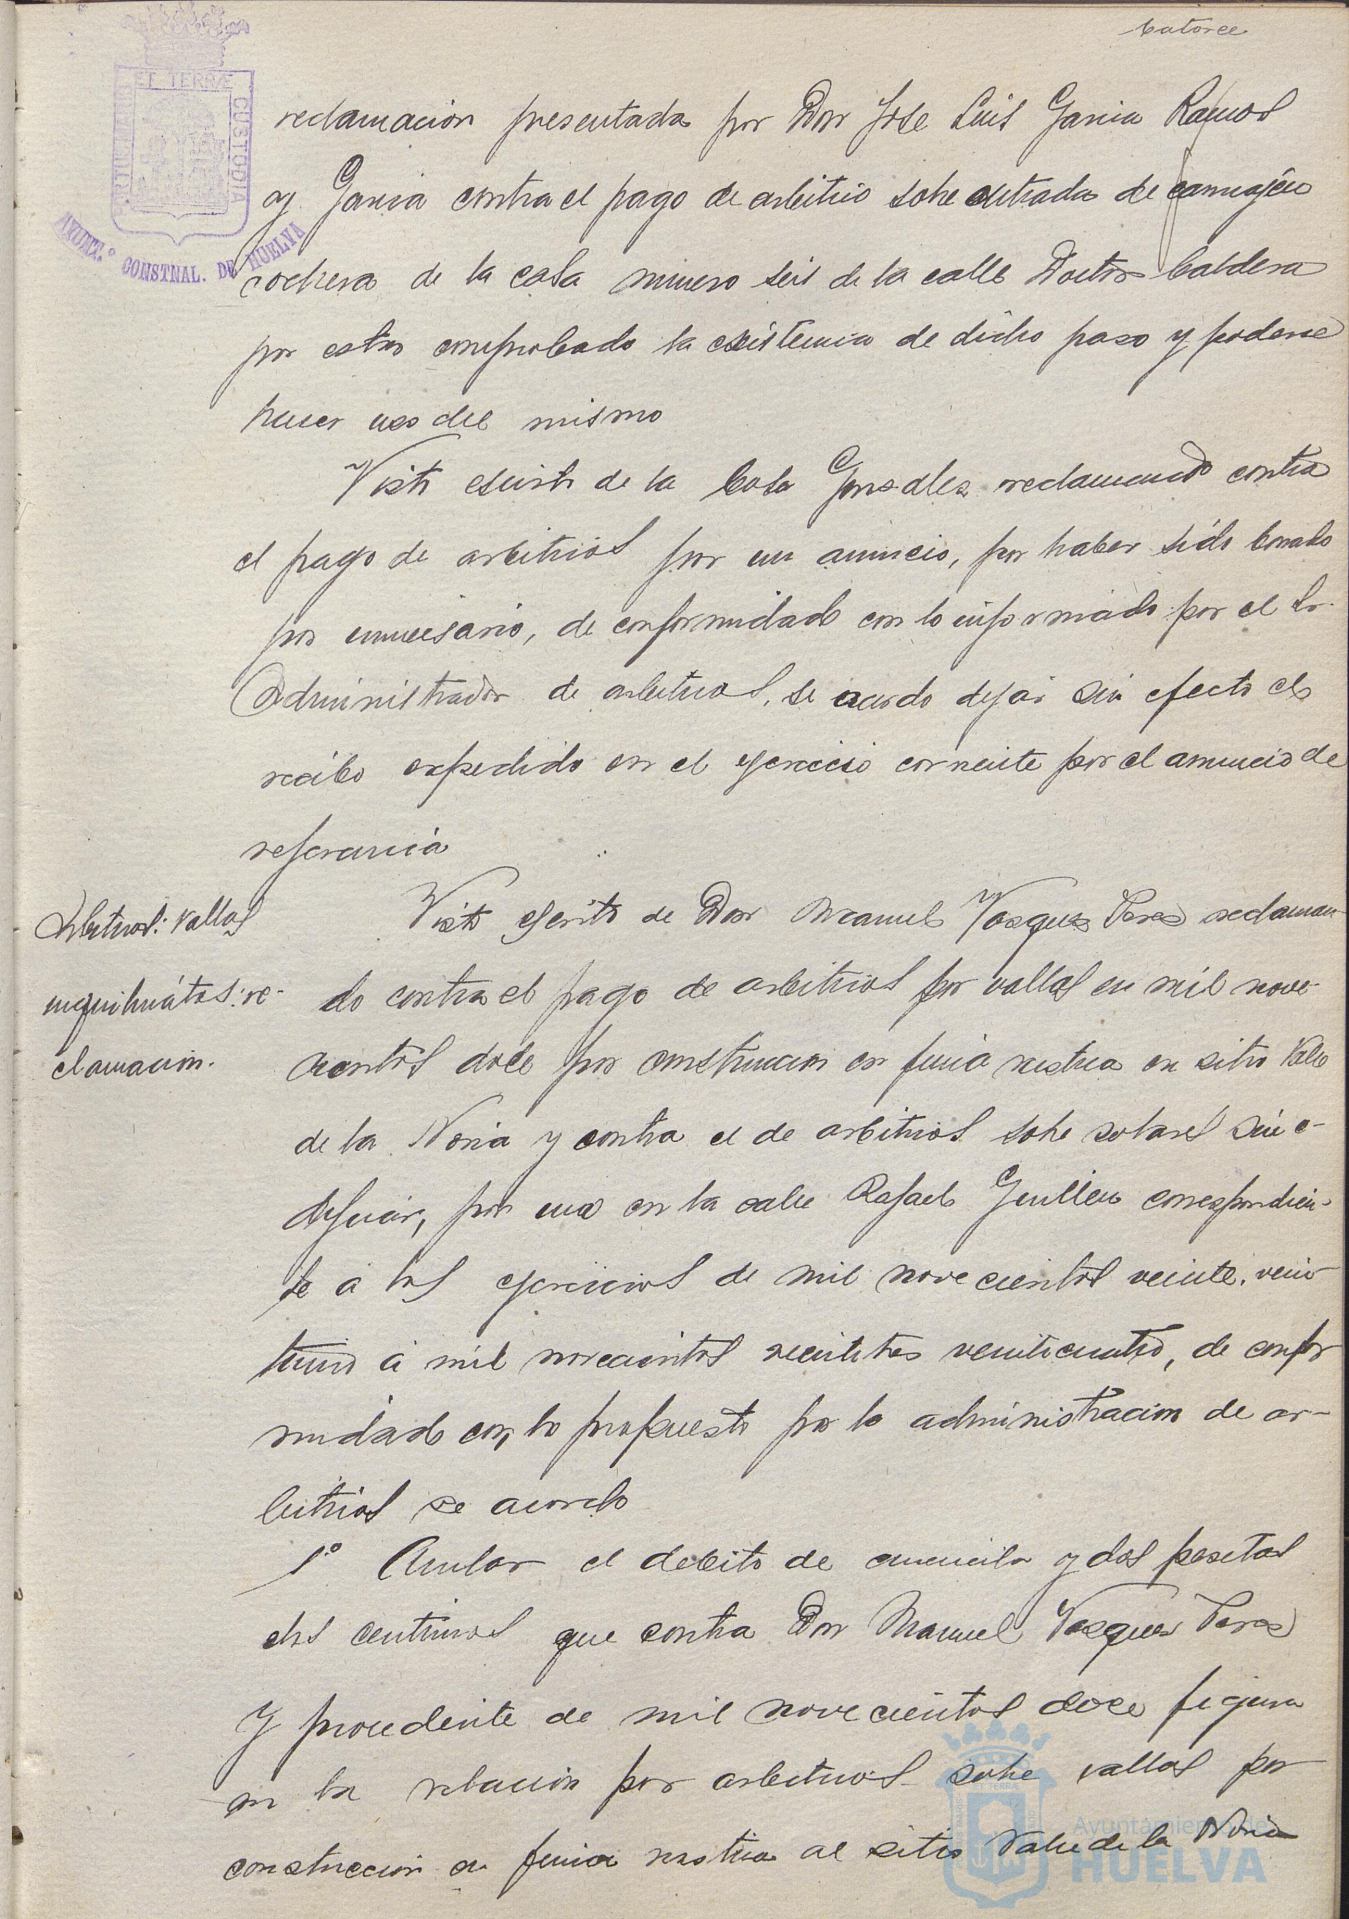 Catorce
PORTUS MARIS ET TERRÆ CUSTODIA
AYUNT.º CONSTNAL. DE HUELVA
reclamacion presentada por Don Jose Luis Garcia Ramos
y Garcia contra el pago de arbitrio sobre entrada de carruajes
cochera de la casa numero seis de la calle Doctor Caldera
por estar comprobado la existencia de dicho paso y poderse
hacer uso del mismo
Visto escrito de la Casa Gonzalez reclamando contra
el pago de arbitrios por un anuncio, por haber sido borrado
por innecesario, de conformidad con lo informado por el Sr.
Administrador de arbitrios, se acordo dejar sin efecto el
recibo expedido en el ejercicio corriente por el anuncio de
referencia
Arbitrios: Vallas
inquilinatos: re-
clamacion.
Visto escrito de Don Manuel Vazquez Perez reclaman-
do contra el pago de arbitrios por vallas en mil nove-
cientos doce por construccion en finca rustica en sitio Valle
de la Noria y contra el de arbitrios sobre solares sin e-
dificar, por uno en la calle Rafael Guillen correspondien-
te a los ejercicios de mil novecientos veinte, vein-
tiuno a mil novecientos veintitres veinticuatro, de confor
midad con lo propuesto por la administracion de ar-
bitrios se acordo
1º Anular el debito de cincuenta y dos pesetas
dos centimos que contra Don Manuel Vazquez Perez
y procedente de mil novecientos doce figura
en la relacion por arbitrios sobre vallas por
construccion en finca rustica al sitio Valle de la Noria
Ayuntamiento de
HUELVA